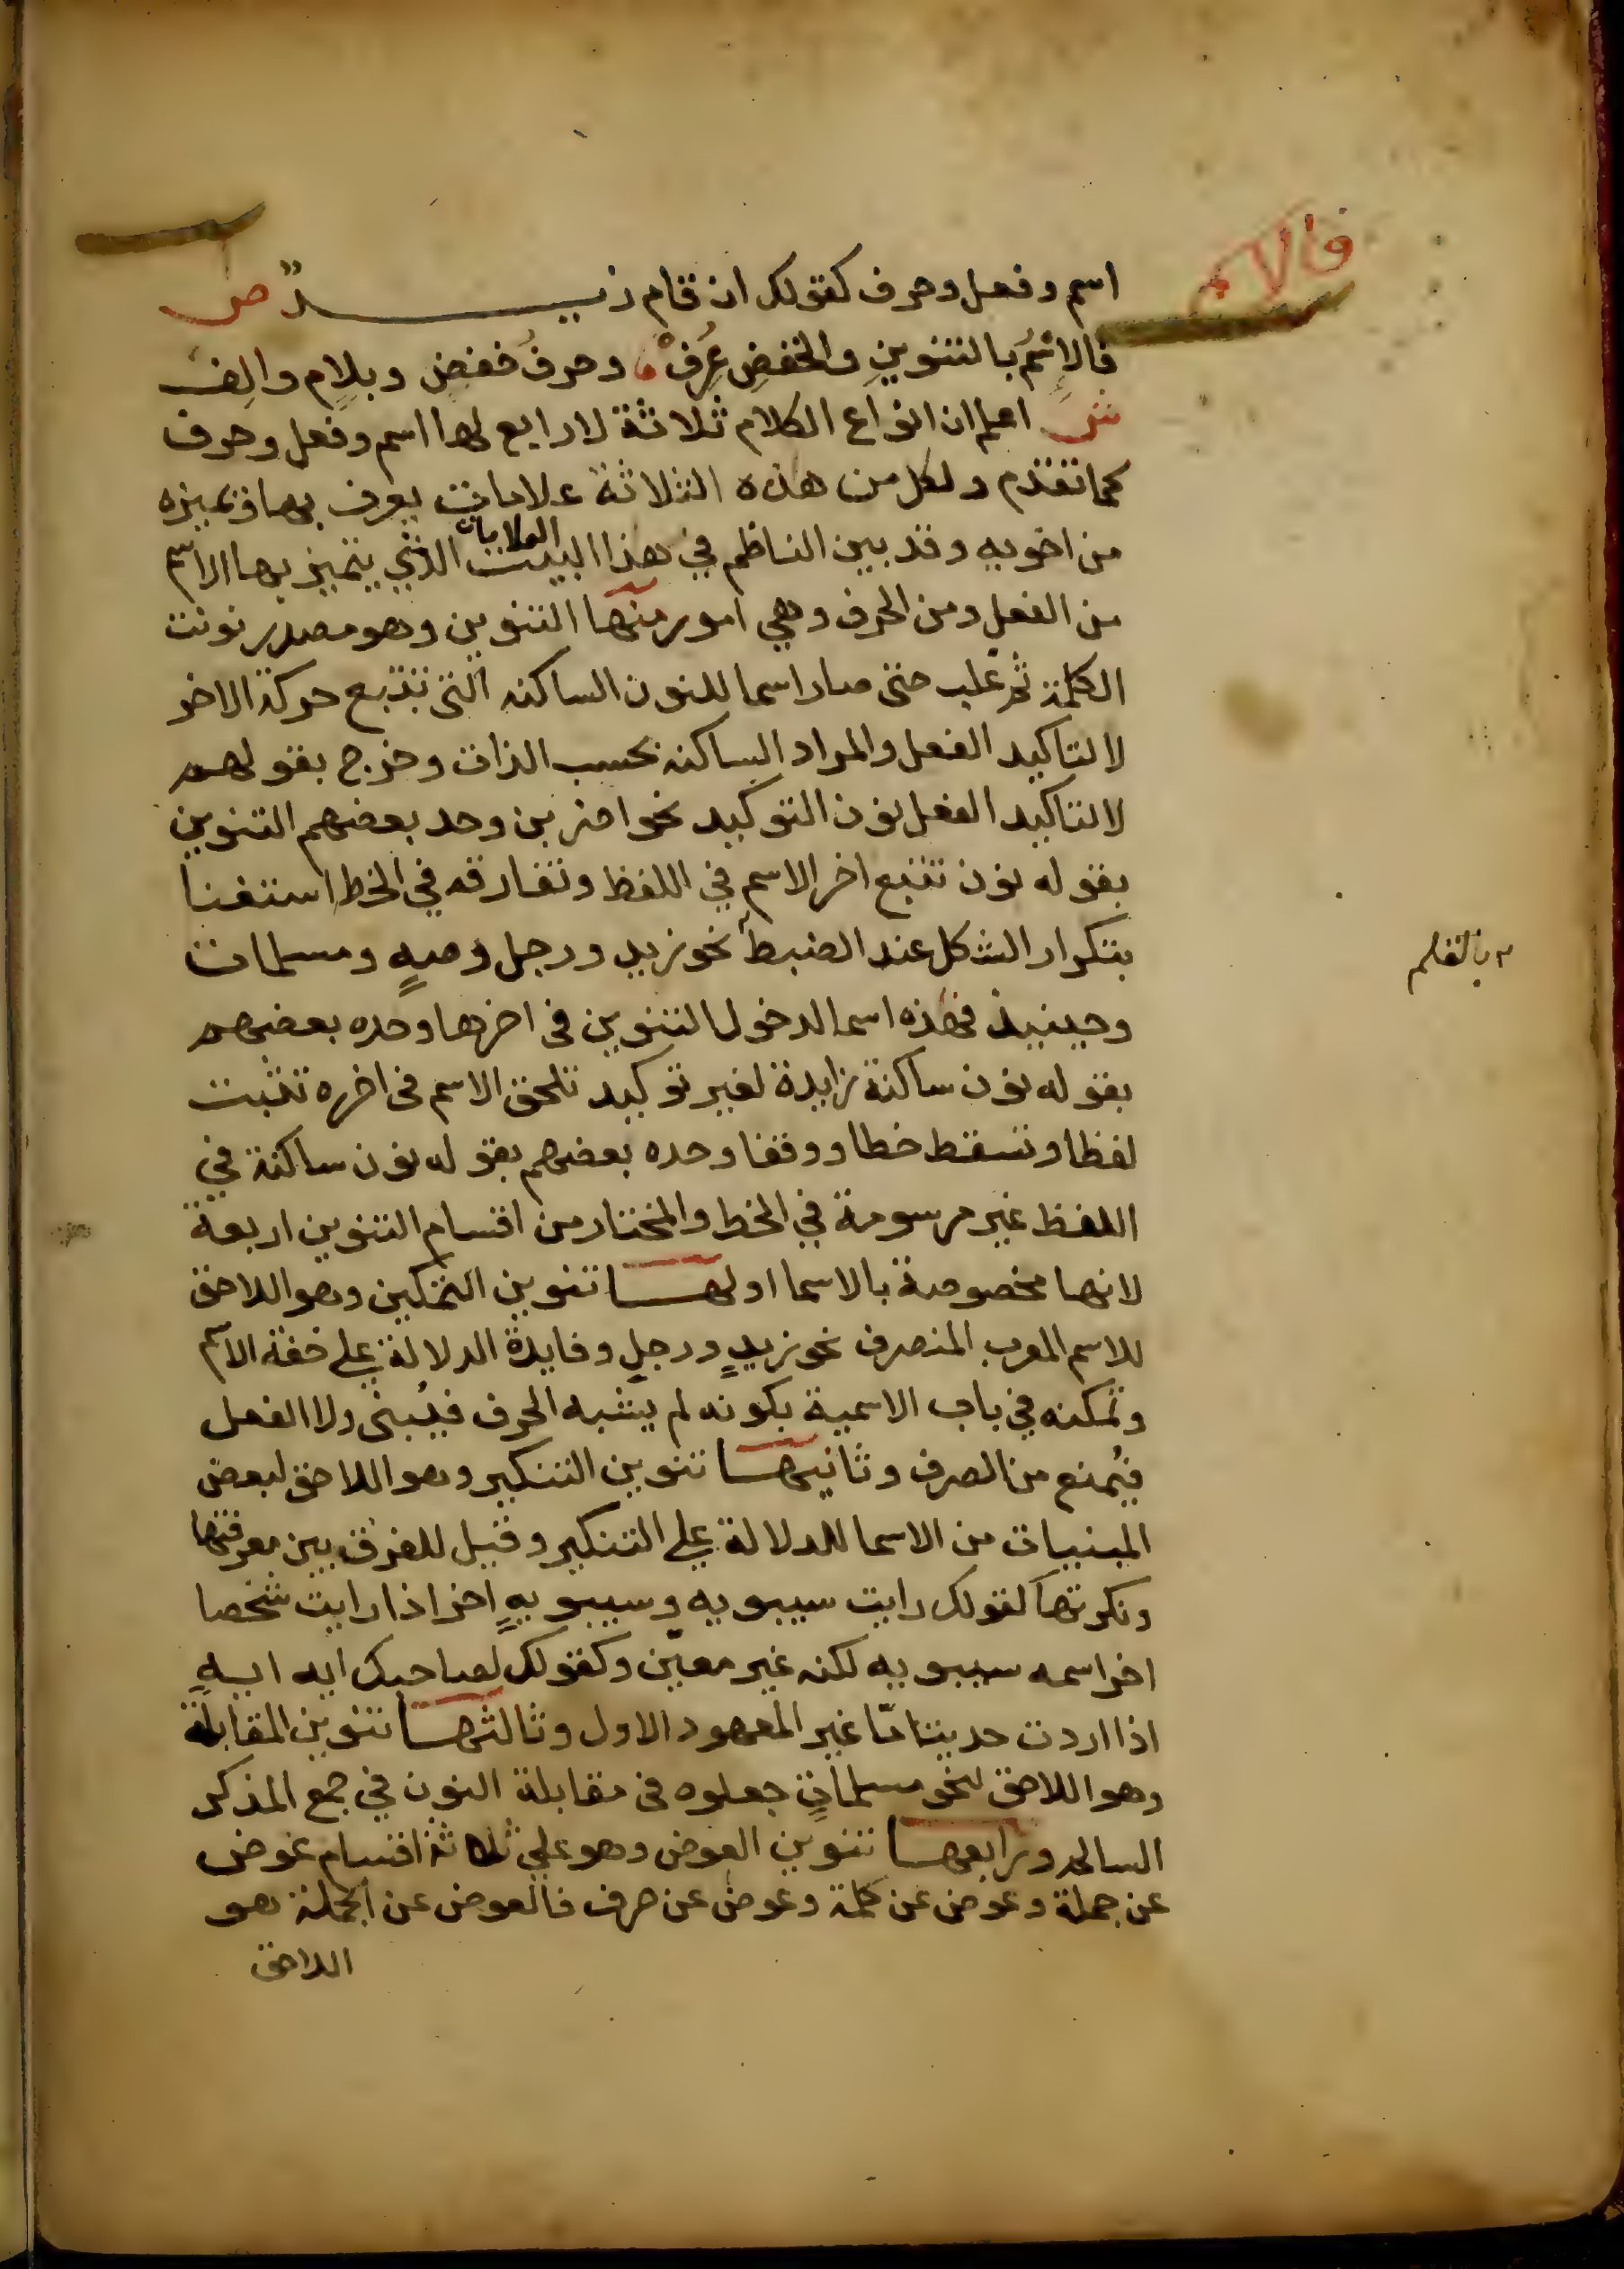 فالاسم
اسم وفعل وحرف كقولك ان قام زيـــــد ص
فالاِسْمُ بالتنوينِ والخفضِ عُرِفْ وحرفُ خفضٍ وبلامٍ والِف
ش اعلم ان انواع الكلام ثلاثة لا رابع لها اسم وفعل وحرف
كما تقدم ولكل من هذه الثلاثة علامات يعرف بها وتميزه
من اخويه وقد بين الناظم في هذا البيت العلامات الذي يتميز بها الاسم
من الفعل ومن الحرف وهي امور منها التنوين وهو مصدر نونت
الكلمة ثم غلب حتى صار اسما للنون الساكنه التي تتبع حركة الاخر
لا لتاكيد الفعل والمراد الساكنه بحسب الذات وخرج بقولهم
لا لتاكيد الفعل نون التوكيد نحو اضربن وحد بعضهم التنوين
بقوله نون تتبع اخر الاسم في اللفظ وتفارقه في الخط استغنا
بتكرار الشكل عند الضبط نحو زيد ورجل وصهٍ ومسلمات
٢ بالقلم
وحينيذ فهذه اسما لدخول التنوين في اخرها وحده بعضهم
بقوله نون ساكنة زايدة لغير توكيد تلحق الاسم في اخره تثبت
لفظا وتسقط خطا ووقفا وحده بعضهم بقوله نون ساكنة في
اللفظ غير مرسومة في الخط والمختار من اقسام التنوين اربعة
لانها مخصوصة بالاسما اولهـا تنوين التمكين وهو اللاحق
للاسم المعرب المنصرف نحو زيدٍ ورجلٍ وفايدة الدلالة على خفة الاسم
وتمكنه في باب الاسمية بكونه لم يشبه الحرف فيُبنى ولا الفعل
فيُمنع من الصرف وثانيهـا تنوين التنكير وهو اللاحق لبعض
المبنيات من الاسما للدلالة علي التنكير وقيل للفرق بين معرفتها
ونكرتها كقولك رايت سيبويه وسيبويهٍ اخر اذا رايت شخصا
اخر اسمه سيبويه لكنه غير معيّن وكقولك لصاحبك ايه ايهٍ
اذا اردت حديثا مّا غير المعهود الاول وثالثهـا تنوين المقابلة
وهو اللاحق لنحو مسلماتٍ جعلوه في مقابلة النون في جمع المذكر
السالم ورابعهـا تنوين العوض وهو علي ثلاثة اقسام عوض
عن جملة وعوض عن كلمة وعوض عن حرف فالعوض عن الجملة هو
اللاحق